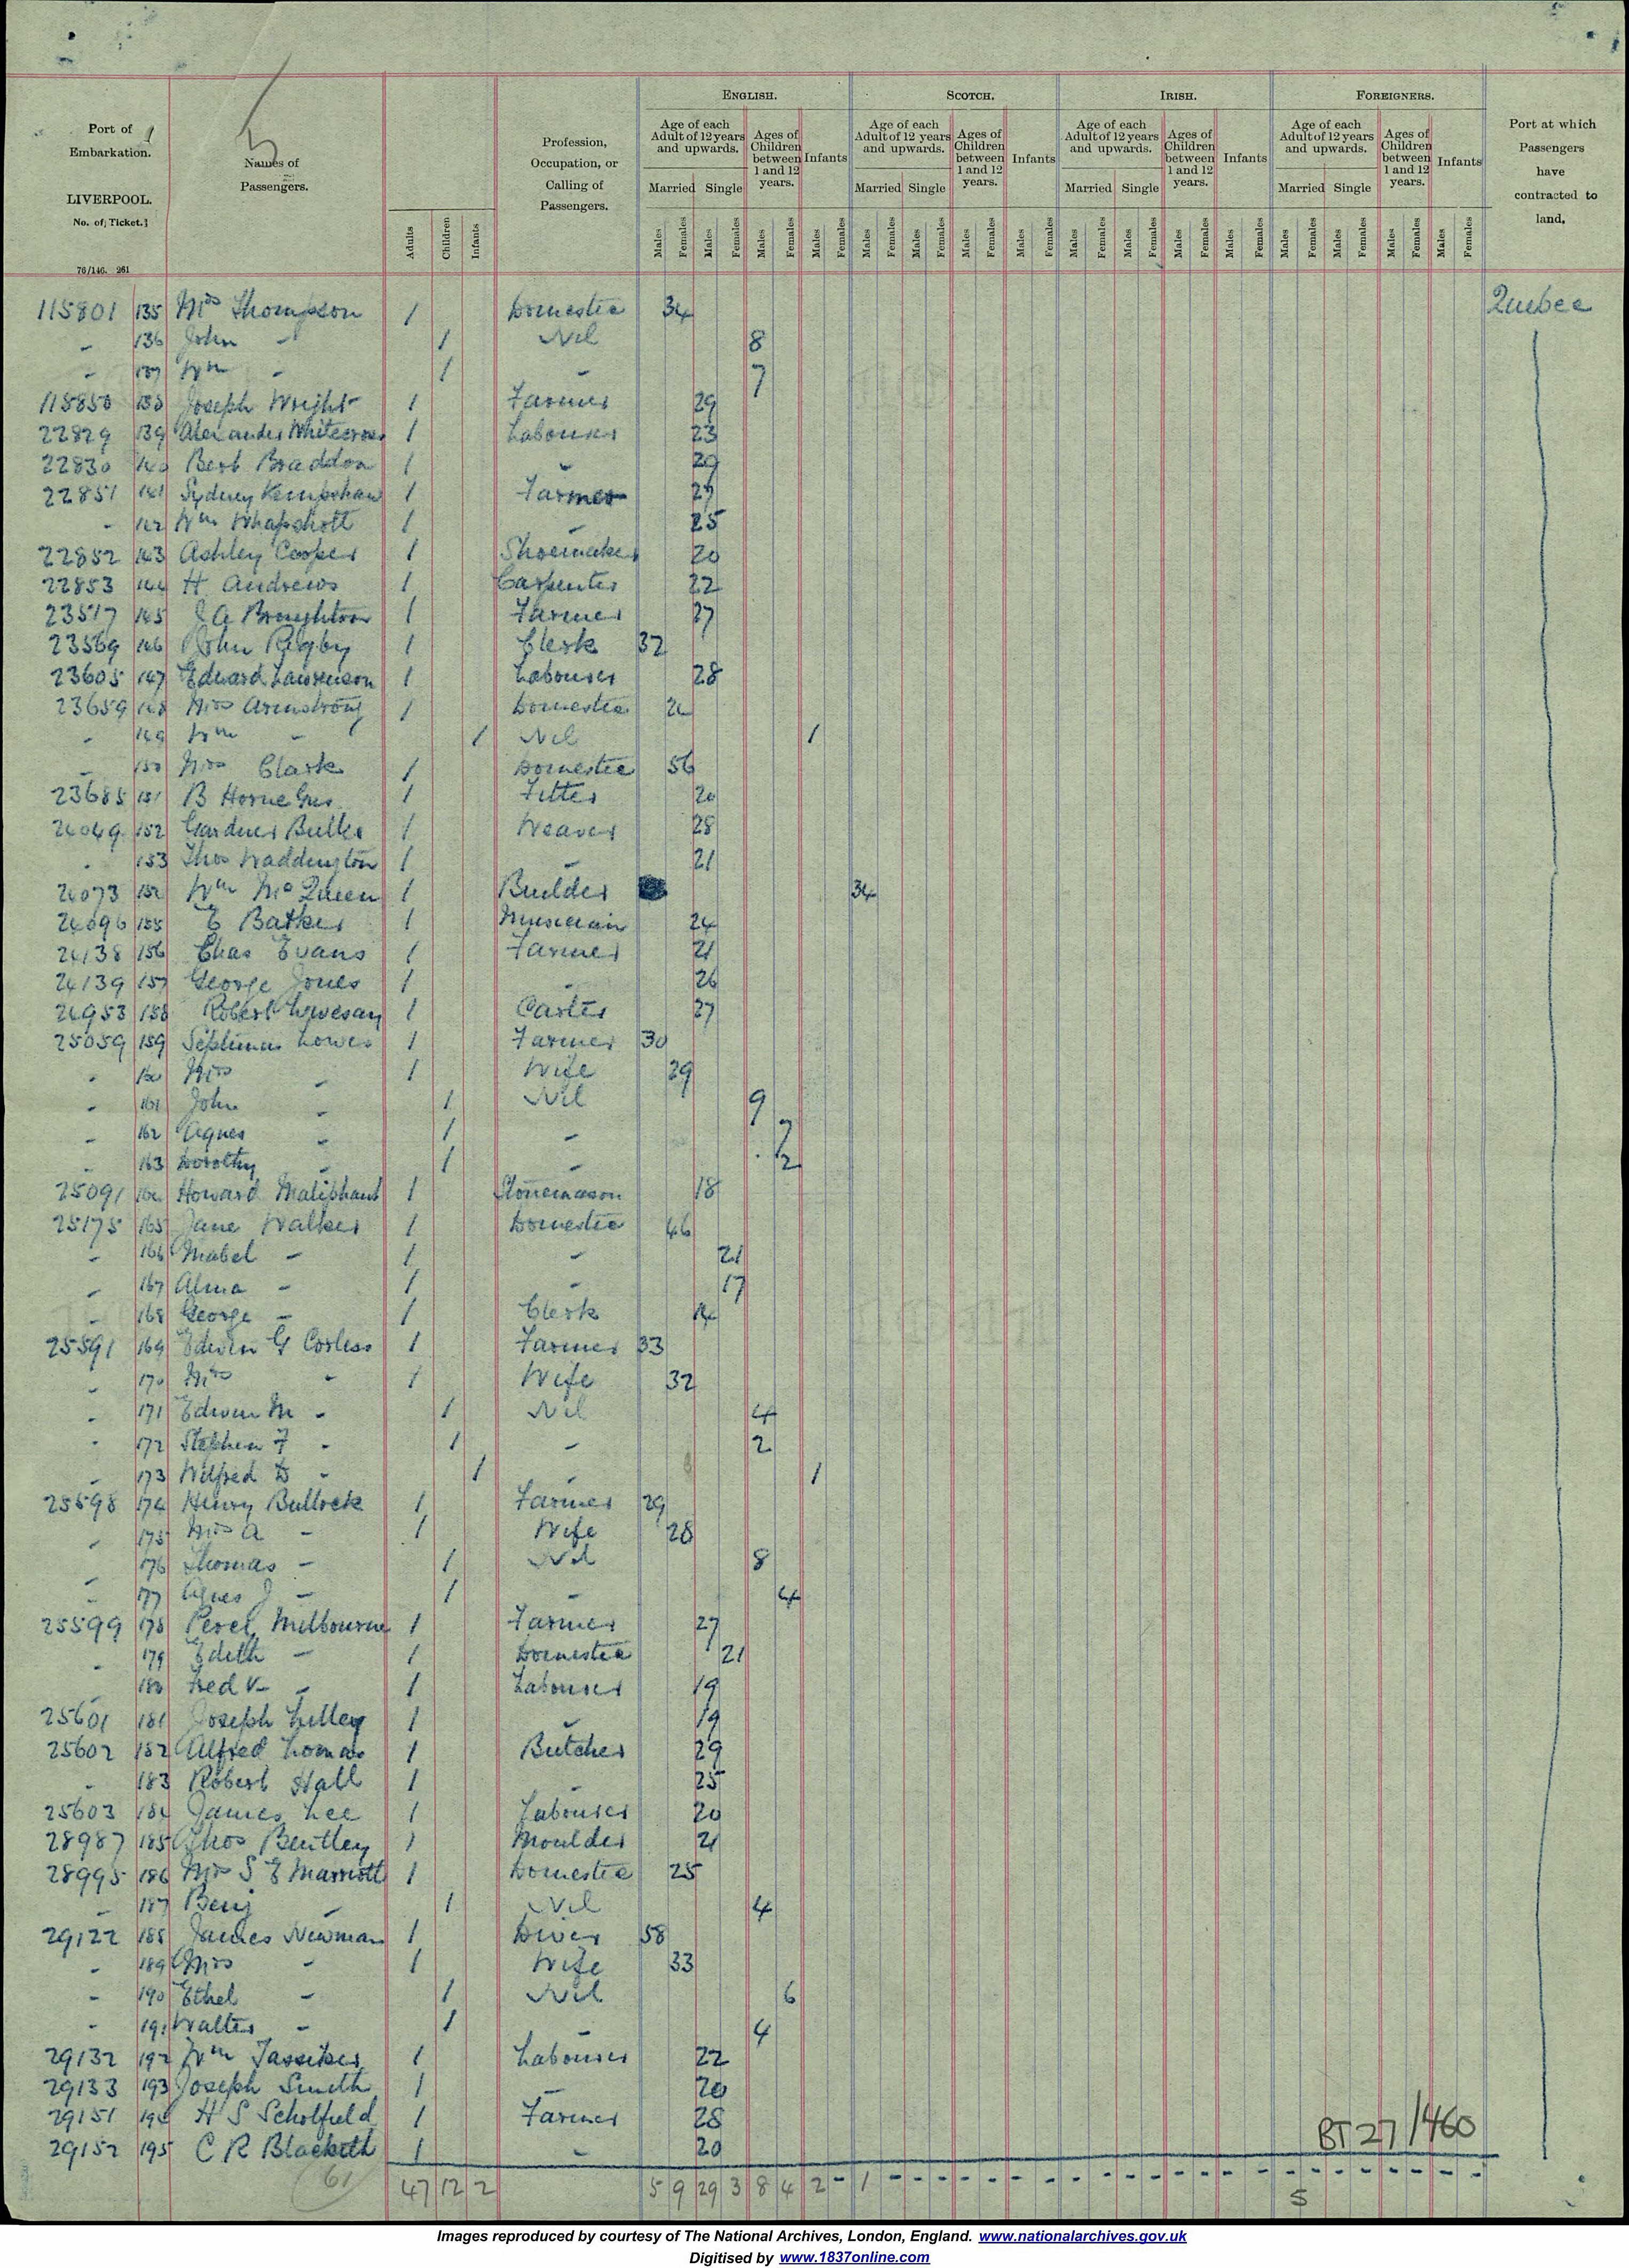 5
Port of
Embarkation.
LIVERPOOL.
No. of Ticket.
76/146. 261
Names of
Passengers.
Adults Children Infants
Profession,
Occupation, or
Calling of
Passengers.
ENGLISH. SCOTCH. IRISH. FOREIGNERS.
Age of each Adult of 12 years and upwards. Ages of Children between 1 and 12 years. Infants
Age of each Adult of 12 years and upwards. Ages of Children between 1 and 12 years. Infants
Age of each Adult of 12 years and upwards. Ages of Children between 1 and 12 years. Infants
Age of each Adult of 12 years and upwards. Ages of Children between 1 and 12 years. Infants
Married Single Married Single Married Single Married Single
Males Females Males Females Males Females Males Females Males Females Males Females Males Females Males Females Males Females Males Females Males Females Males Females Males Females Males Females Males Females Males Females
Port at which
Passengers
have
contracted to
land.
115801 135 Mrs Thompson 1 Domestic 34 Quebec
- 136 John - 1 Nil 8
- 137 Wm - 1 - 7
115850 138 Joseph Wright 1 Farmer 29
22829 139 Alexander Whitecross 1 Labourer 23
22830 140 Bert Braddon 1 - 29
22851 141 Sydney Kempshaw 1 Farmer 27
- 142 Wm Whapshott 1 - 25
22852 143 Ashley Cooper 1 Shoemaker 20
22853 144 H Andrews 1 Carpenter 22
23517 145 J A Broughton 1 Farmer 27
23569 146 John Rigby 1 Clerk 32
23605 147 Edward Lawrenson 1 Labourer 28
23659 148 Mrs Armstrong 1 Domestic
- 149 Wm - 1 Nil 1
- 150 Mrs Clark 1 Domestic 56
23685 151 B Horne 1 Fitter 20
24049 152 Gardner Butler 1 Weaver 28
- 153 Thos Waddington 1 - 21
24073 154 Wm McQueen 1 Builder 34
24096 155 E Barker 1 Musician 24
24138 156 Chas Evans 1 Farmer 21
24139 157 George Jones 1 - 26
24953 158 Robert 1 Carter 27
25059 159 Septimus Lowes 1 Farmer 30
- 160 Mrs - 1 Wife 29
- 161 John - 1 Nil 9
- 162 Agnes - 1 - 7
- 163 Dorothy - 1 - 2
25091 164 Howard Maliphant 1 Stonemason 18
25175 165 Jane Walker 1 Domestic 46
- 166 Mabel - 1 - 21
- 167 Alma - 1 - 17
- 168 George - 1 Clerk 14
25591 169 Edwin G Corless 1 Farmer 33
- 170 Mrs - 1 Wife 32
- 171 Edwin M - 1 Nil 4
- 172 Stephen F - 1 - 2
- 173 Wilfred D - 1 - 1
25598 174 Henry Bullock 1 Farmer 29
- 175 Mrs A - 1 Wife 28
- 176 Thomas - 1 Nil 8
- 177 Agnes J - 1 - 4
25599 178 Percy Milbourne 1 Farmer 27
- 179 Edith - 1 Domestic 21
- 180 Fred V - 1 Labourer 19
25601 181 Joseph Lilley 1 - 19
25602 182 Alfred Lomas 1 Butcher 29
- 183 Robert Hall 1 - 25
25603 184 James Lee 1 Labourer 20
28987 185 Thos Bentley 1 Moulder 21
28995 186 Mrs S E Marriott 1 Domestic 25
- 187 Benj - 1 Nil 4
29122 188 James Newman 1 Diver 58
- 189 Mrs - 1 Wife 33
- 190 Ethel - 1 Nil 6
- 191 Walter - 1 - 4
29132 192 Wm Tassiker 1 Labourer 22
29133 193 Joseph Smith 1 - 20
29151 194 H S Scholfield 1 Farmer 28
29152 195 C R 1 - 20
BT 27/460
61 47 12 2 5 9 29 3 8 4 2 - 1 - - - - - - - - - - - - - - - - - - - - - - -
5
Images reproduced by courtesy of The National Archives, London, England. www.nationalarchives.gov.uk
Digitised by www.1837online.com